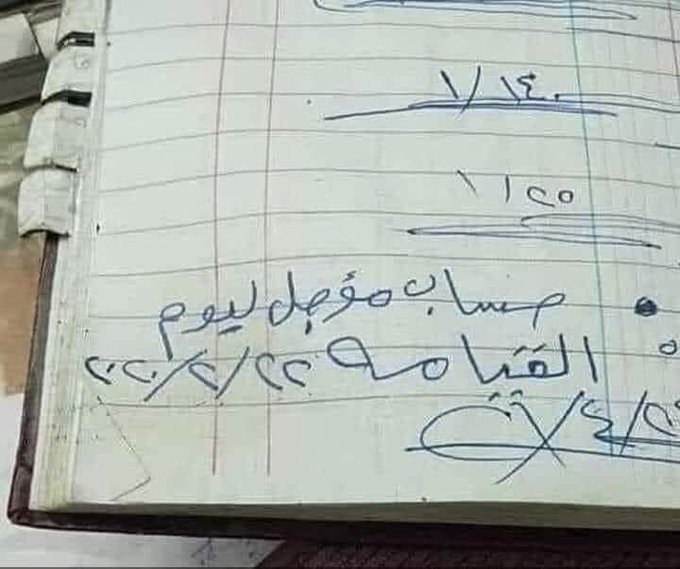 ١/١٤٠
١١٢٥
حساب مؤجل ليوم
القيامه ٢٢/٢/٢٠٢٢